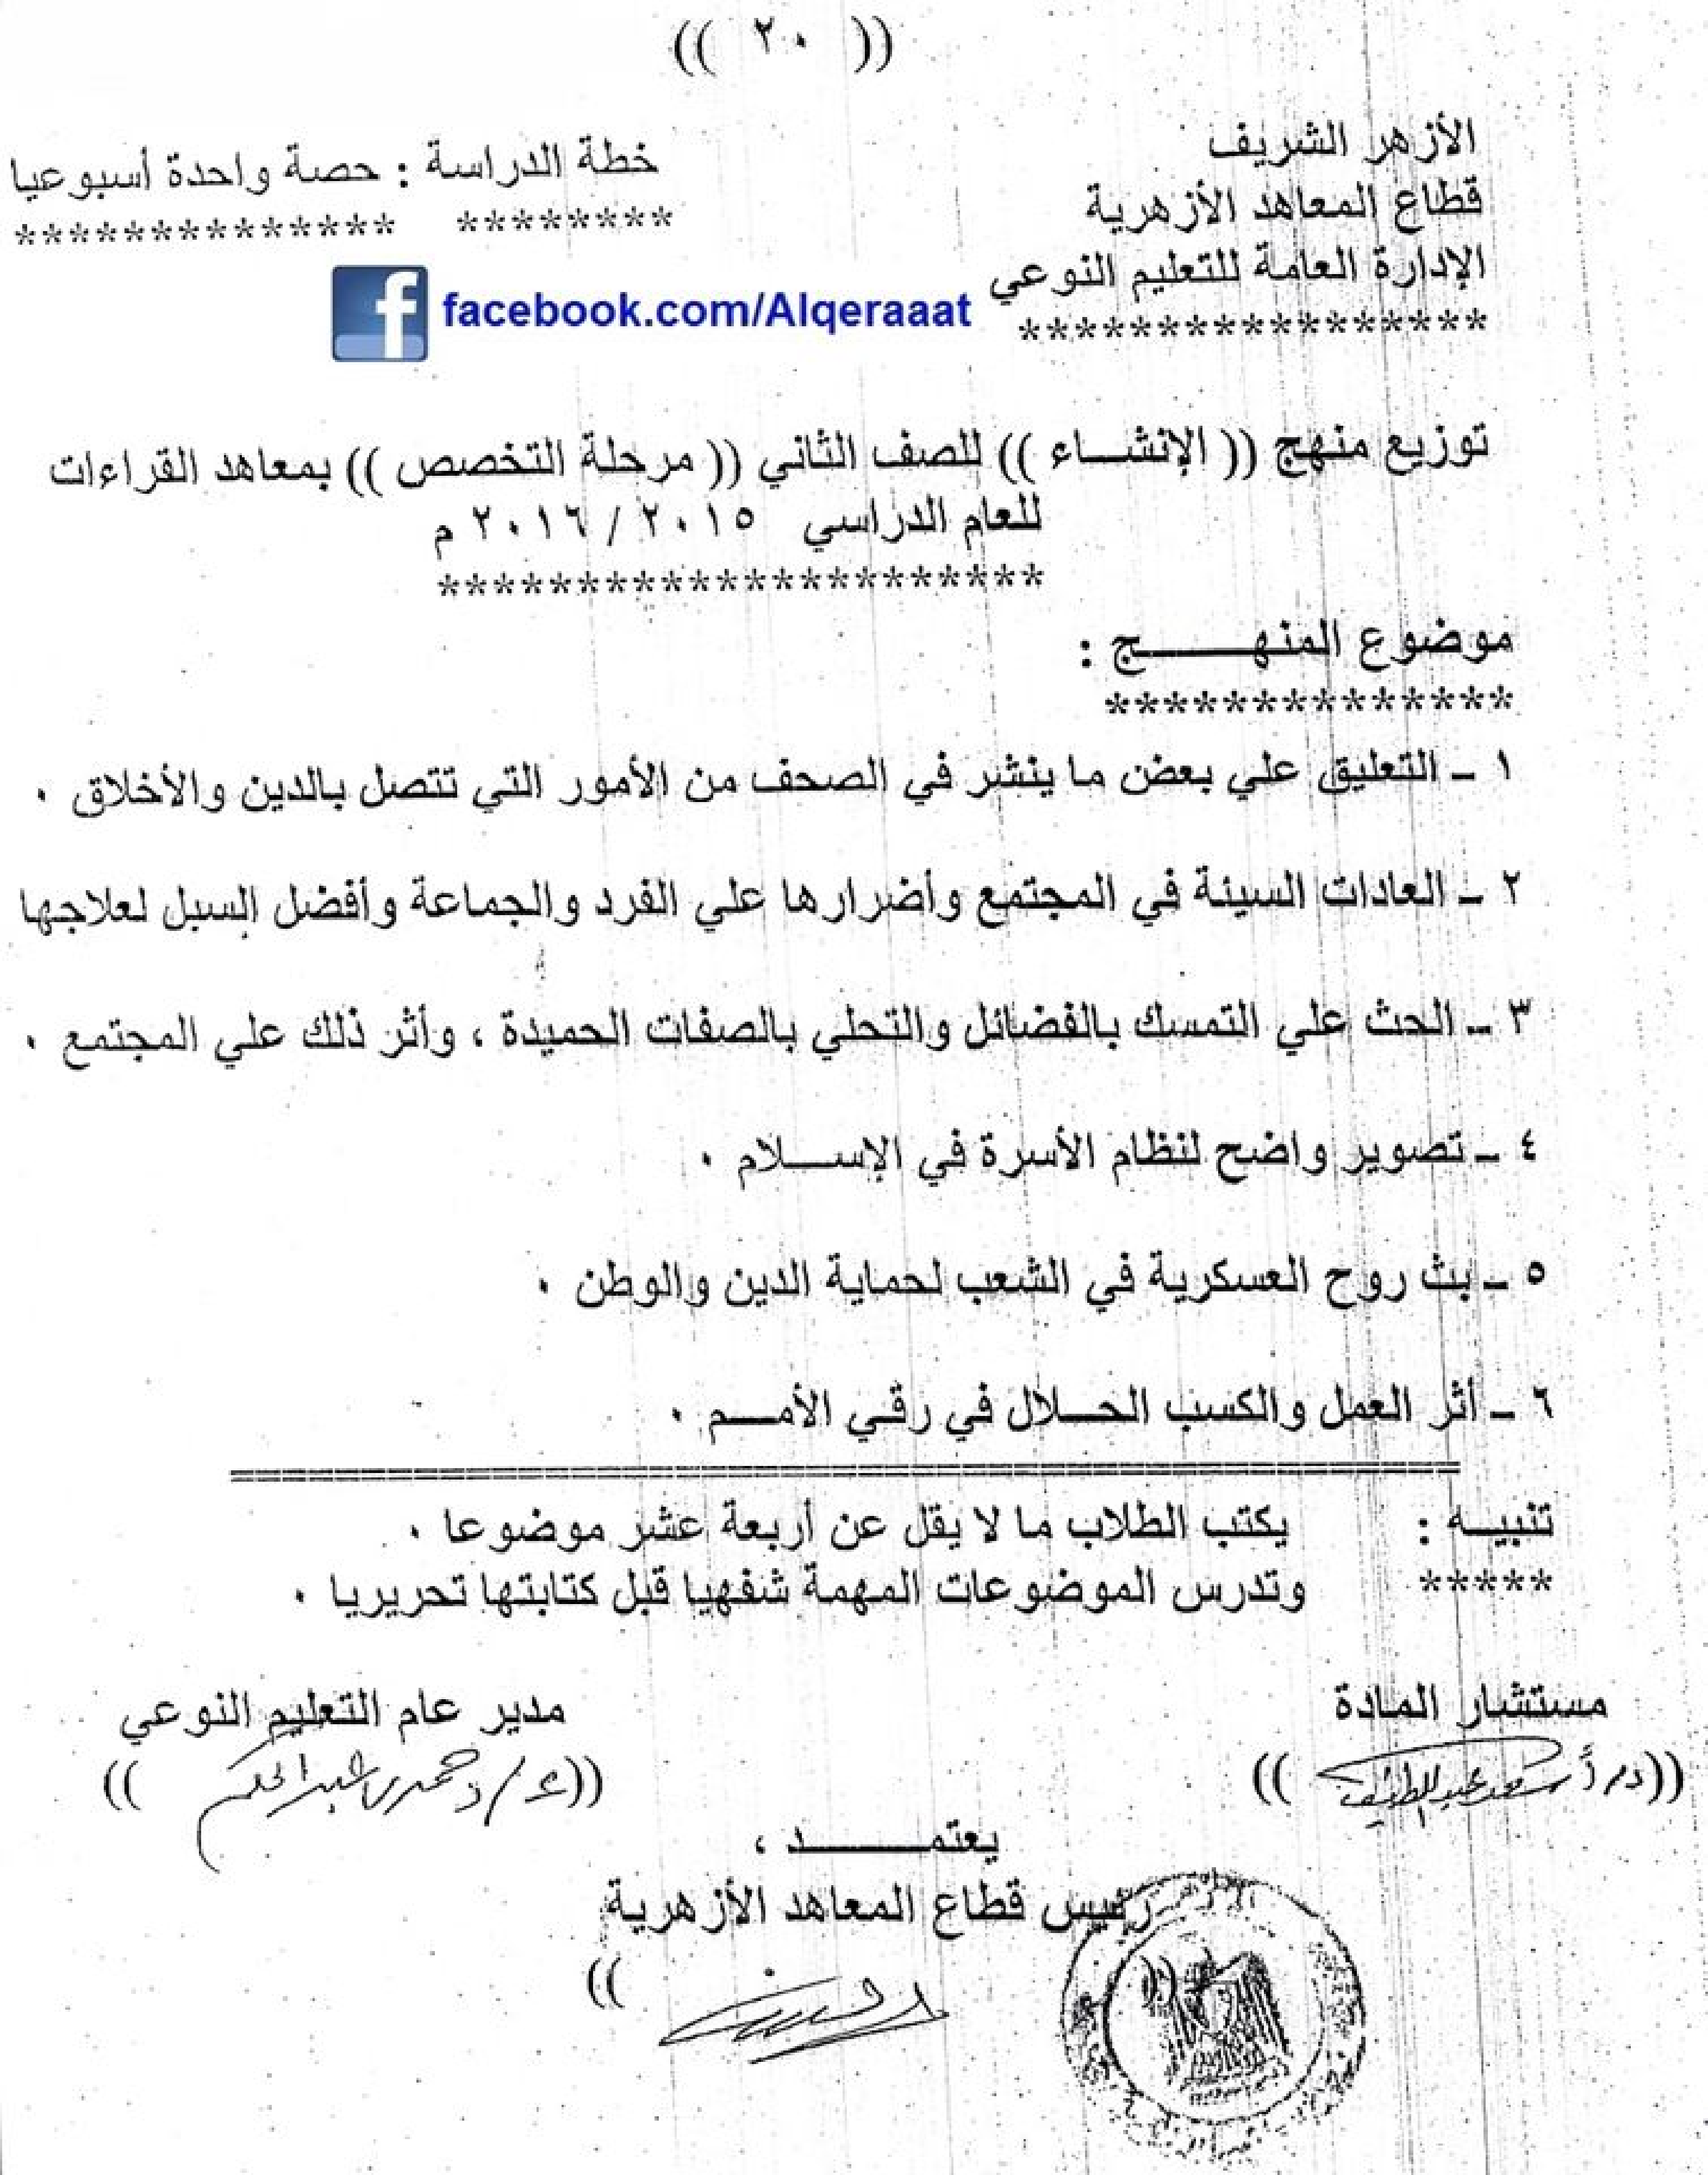 (( ٢٠ ))
الأزهر الشريف
قطاع المعاهد الأزهرية
الإدارة العامة للتعليم النوعي
******************
خطة الدراسة : حصة واحدة أسبوعيا
******** **************
facebook.com/Alqeraaat
توزيع منهج (( الإنشـــاء )) للصف الثاني (( مرحلة التخصص )) بمعاهد القراءات
للعام الدراسي ٢٠١٥ / ٢٠١٦ م
**********************
موضوع المنهـــــــج :
**************
١ ــ التعليق علي بعض ما ينشر في الصحف من الأمور التي تتصل بالدين والأخلاق .
٢ ــ العادات السيئة في المجتمع وأضرارها علي الفرد والجماعة وأفضل السبل لعلاجها
٣ ــ الحث علي التمسك بالفضائل والتحلي بالصفات الحميدة ، وأثر ذلك علي المجتمع .
٤ ــ تصوير واضح لنظام الأسرة في الإســـلام .
٥ ــ بث روح العسكرية في الشعب لحماية الدين والوطن .
٦ ــ أثر العمل والكسب الحـــلال في رقي الأمـــم .
تنبيـــه : يكتب الطلاب ما لا يقل عن أربعة عشر موضوعا .
***** وتدرس الموضوعات المهمة شفهيا قبل كتابتها تحريريا .
مستشار المادة
مدير عام التعليم النوعي
يعتمـــــــــد ،
رئيس قطاع المعاهد الأزهرية